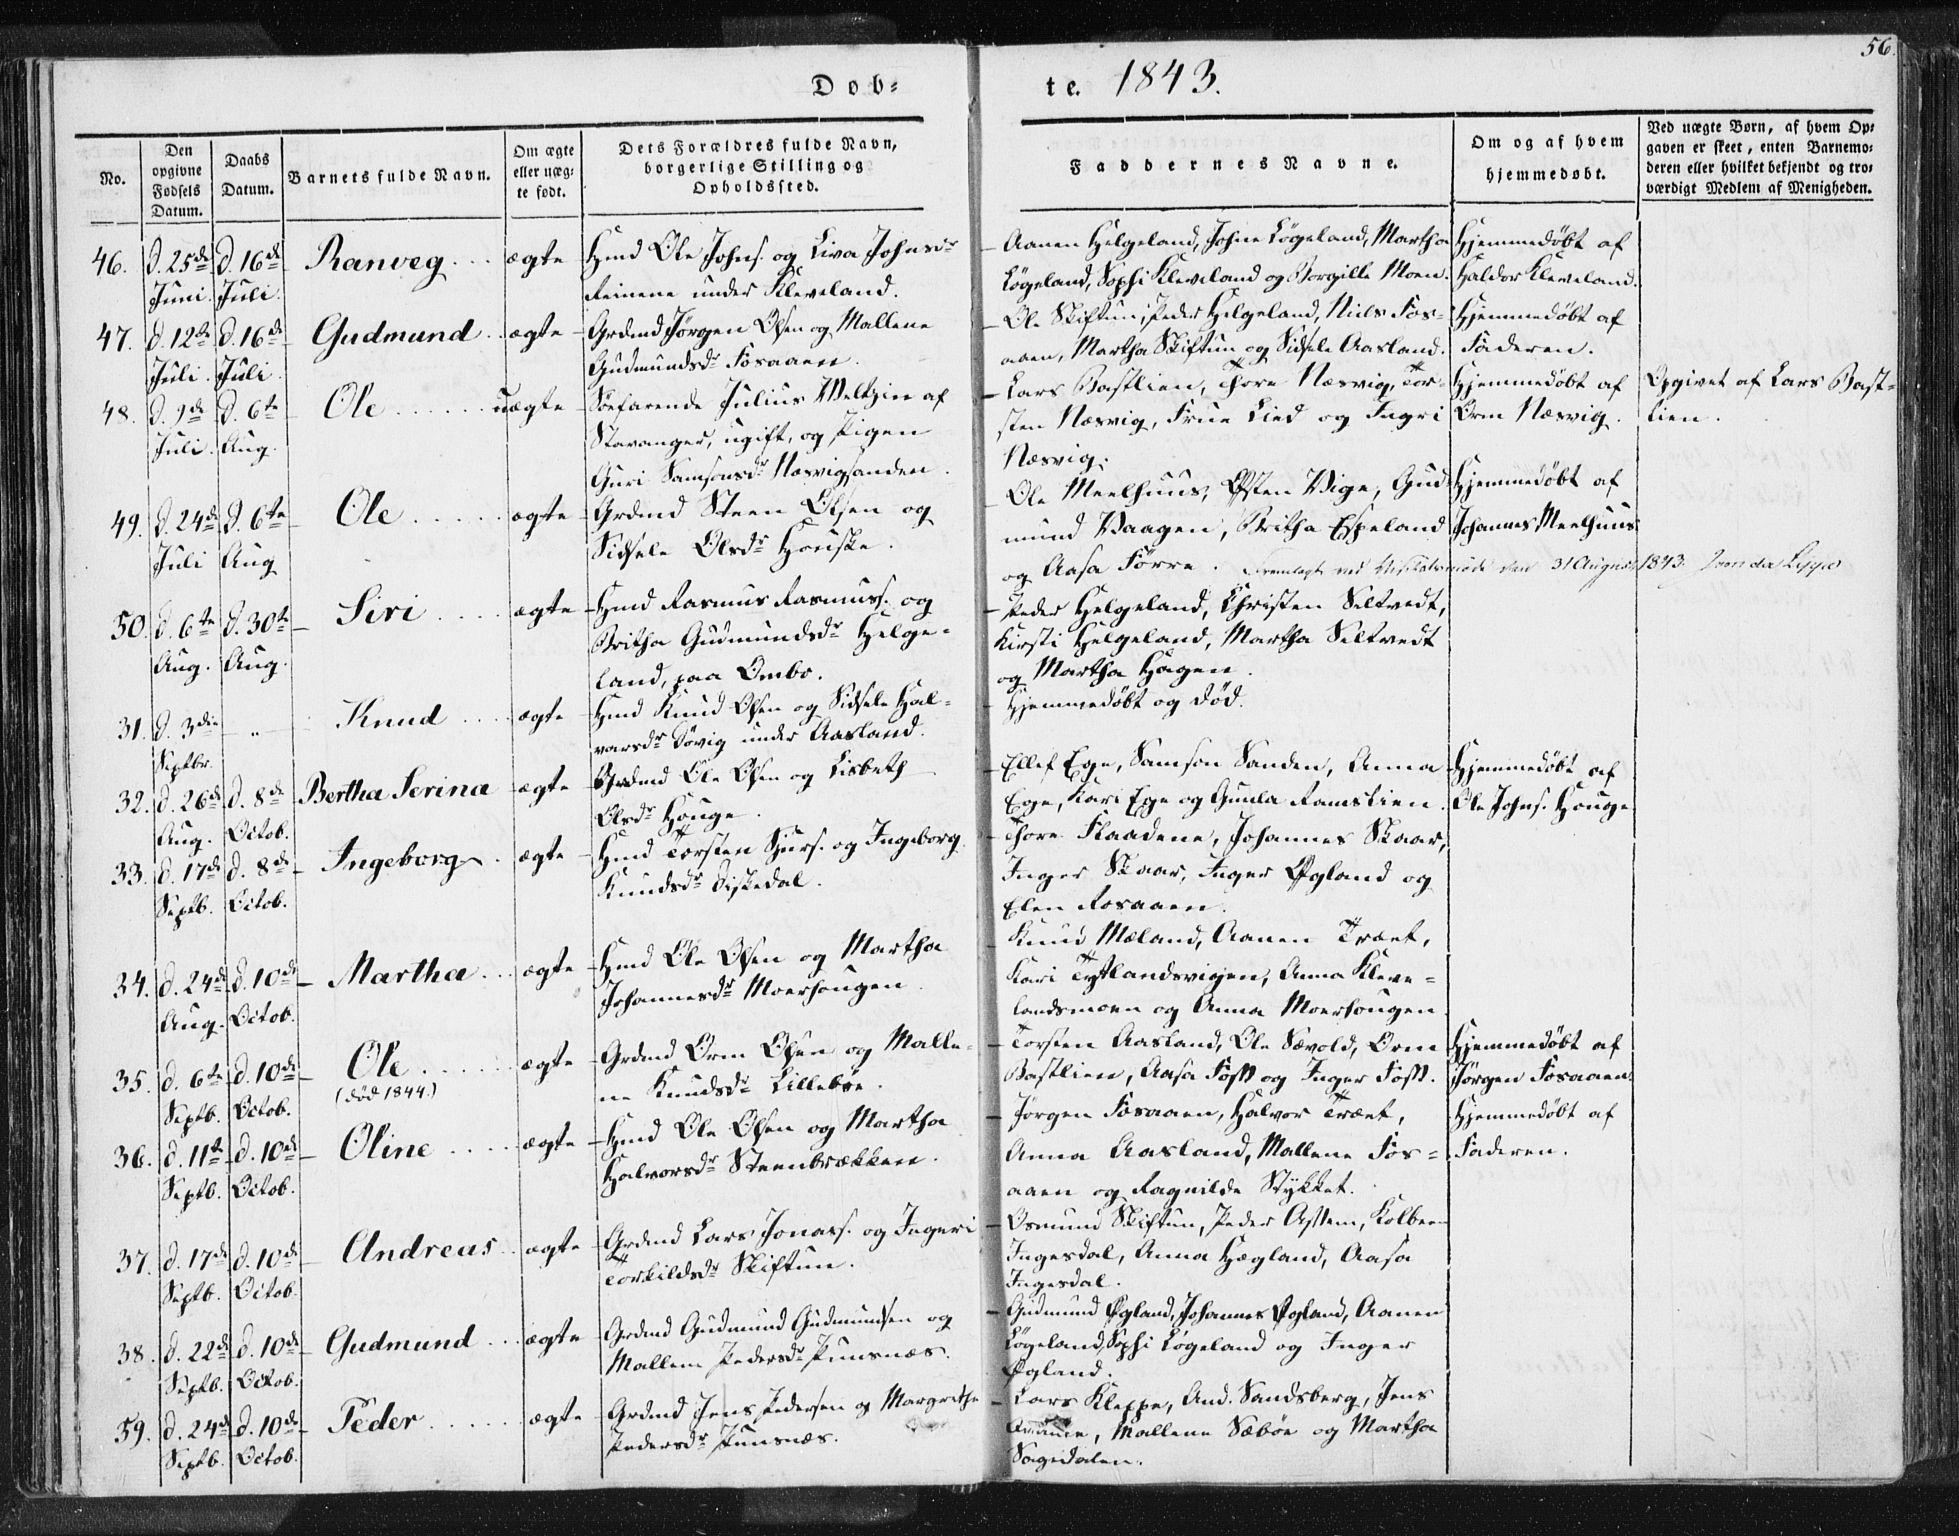 56.
Døb=
te. 1843.
No.
Den opgivne Fødsels Datum.
Daabs Datum.
Barnets fulde Navn.
Om ægte eller uæg=te født.
Dets Forældres fulde Navn, borgerlige Stilling og Opholdssted.
Faddernes Navne.
Om og af hvem hjemmedøbt.
Ved uægte Børn, af hvem Op=gaven er skeet, enten Barnemo=deren eller hvilket bekjendt og tro=værdigt Medlem af Menigheden.
46. d. 25de Juni. d. 16de Juli. Ranveg ægte
Hmd Ole Johns. og Liva Johnsdr
Reinene under Kleveland.
Aanen Helgeland, Johne Løgeland, Martha
Løgeland, Sophi Kleveland og Borgille Moen.
Hjemmedøbt af
Haldor Kleveland.
47. d. 12te Juli. d. 16de Juli. Gudmund ægte
Grdmd Jørgen Olsen og Mallene
Gudmundsdr Fosaaen.
Ole Skiftun, Peder Helgeland, Niels Fos=
aaen, Martha Skiftun og Sidsele Aasland.
Hjemmedøbt af
Faderen.
48. d. 9de Juli. d. 6te Aug. Ole uægte
Søefarende Julius Weltzin af
Stavanger, ugift, og Pigen
Guri Samsonsdr Næsvigsanden.
Lars Bastlien, Thore Næsvig, Tor=
sten Næsvig, Frue Lied og Ingri
Næsvig.
Hjemmedøbt af
Orm Næsvig.
Opgivet af Lars Bast=
lien.
49. d. 24de Juli d. 6te Aug Ole ægte
Grdmd Steen Olsen og
Sidsele Olsdr Houske.
Ole Meelhuus, Østen Vige, Gud=
mund Vaagen, Britha Espeland
og Aasa Førre.
Hjemmedøbt af
Johannes Meelhuus
Fremlagt ved Visitats den 31 August 1843.
50. d. 6te Aug. d. 30te Aug. Siri ægte
Hmd Rasmus Rasmuss. og
Britha Gudmundsdr Helge=
land, paa Ombo.
Peder Helgeland, Christen Seltvedt,
Kirsti Helgeland, Martha Seltvedt
og Martha Hagen.
31. d. 3die Septbr. „ Knud ægte
Hmd Knud Olsen og Sidsele Hal=
vorsdr Søvig under Aasland.
Hjemmedøbt og død.
32. d. 26de Aug. d. 8de Octob. Bertha Serina ægte
Grdmd Ole Olsen og Lisbeth
Olsdr Houge.
Ellef Ege, Samson Sanden, Anna
Ege, Kari Ege og Gunla Ramslien.
Hjemmedøbt af
Ole Johns. Houge
33. d. 17de Septb. d. 8de Octob. Ingeborg ægte
Hmd Torsten Sjurs. og Ingeborg
Knudsdr Diskedal.
Thore Flaadene, Johannes Skaar,
Inger Skaar, Inger Øgland og
Elen Fosaaen.
34. d. 24de Aug. d. 10de Octob. Martha ægte
Hmd Ole Olsen og Martha
Johannesdr Moerhougen.
Knud Mæland, Aanen Træet,
Kari Tytlandsvigen, Anna Kleve=
landsmoen og Anna Moerhougen.
35. d. 6te Septb. d. 10de Octob. Ole ægte
(død 1844.)
Grdmd Orm Olsen og Malle=
ne Knudsdr Lillebøe.
Torsten Aasland, Ole Sævold, Orm
Bastlien, Aasa Foss og Inger Foss.
Hjemmedøbt af
Jørgen Fosaaen.
36. d. 11te Septb. d. 10de Octob. Oline ægte
Hmd Ole Olsen og Martha
Halvorsdr Steenbrækken.
Jørgen Fosaaen, Halvor Træet,
Anna Aasland, Mallene Fos=
aaen og Ragnilde Stykket.
Hjemmedøbt af
Faderen.
37. d. 17de Septb. d. 10de Octob. Andreas ægte
Grdmd Lars Jonass. og Ingeri
Torkildsdr Skiftun.
Osmund Skiftun, Peder Assem, Kolbeen
Ingesdal, Anna Hægland, Aasa
Ingesdal.
38. d. 22de Septb. d. 10de Octob. Gudmund ægte
Grdmd Gudmund Gudmundsen og
Mallene Pedersdr Punsnæs.
Gudmund Øgland, Johannes Øgland, Aanen
Løgeland, Sophi Løgeland og Inger
Øgland.
59. d. 24de Septb. d. 10de Octob. Peder ægte
Grdmd Jens Pedersen og Margrethe
Pedersdr Punsnæs.
Lars Kleppe, And. Sandsberg, Jens
Mallene Sæbøe og Martha
Sagidalen.